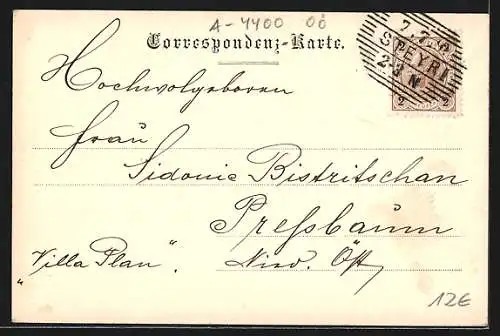 A-4400 OÖ
Correspondenz-Karte.
7.7.
STEYR
2-3 N
2 2
Hochwolgeboren
Frau
Sidonie Bistritschan
Pressbaum
"Villa Plan". Nied. Öst.
12€